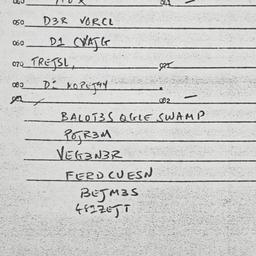 050 D3R VORCL
060 D1 CVAJG
070 TREJSL,
080 D1
082
BALOT3S QGLE SWAMP
POJR3M
VEG3N3R
FERD CUESN
BEJM3S
481ZEJT